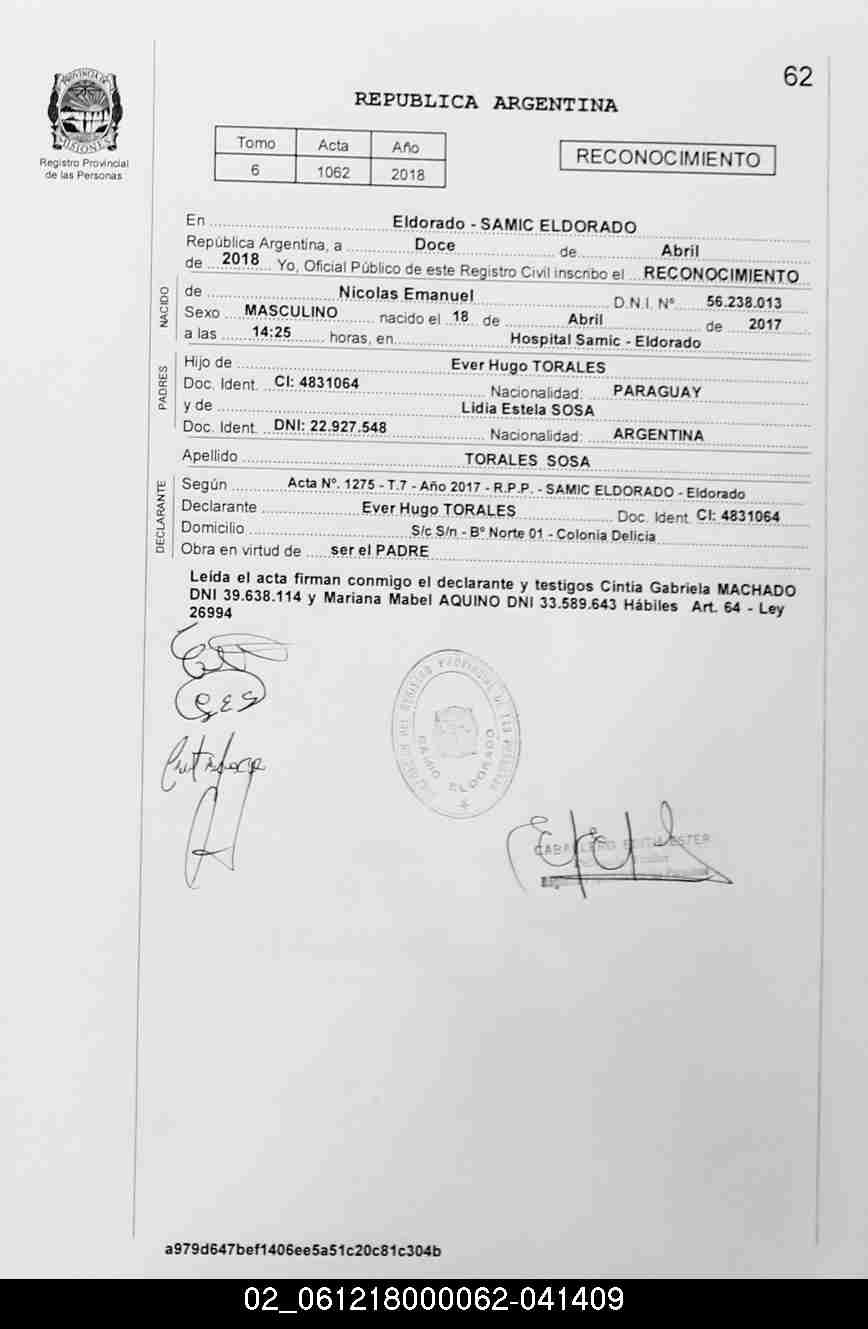 62
PROVINCIA DE
MISIONES
Registro Provincial
de las Personas
REPUBLICA ARGENTINA
Tomo Acta Año
6 1062 2018
RECONOCIMIENTO
En Eldorado - SAMIC ELDORADO
República Argentina, a Doce de Abril
de 2018 Yo, Oficial Público de este Registro Civil inscribo el RECONOCIMIENTO
NACIDO
de Nicolas Emanuel D.N.I. Nº 56.238.013
Sexo MASCULINO nacido el 18 de Abril de 2017
a las 14:25 horas, en Hospital Samic - Eldorado
PADRES
Hijo de Ever Hugo TORALES
Doc. Ident. CI: 4831064 Nacionalidad: PARAGUAY
y de Lidia Estela SOSA
Doc. Ident. DNI: 22.927.548 Nacionalidad: ARGENTINA
Apellido TORALES SOSA
DECLARANTE
Según Acta Nº. 1275 - T.7 - Año 2017 - R.P.P. - SAMIC ELDORADO - Eldorado
Declarante Ever Hugo TORALES Doc. Ident. CI: 4831064
Domicilio S/c S/n - Bº Norte 01 - Colonia Delicia
Obra en virtud de ser el PADRE
Leída el acta firman conmigo el declarante y testigos Cintia Gabriela MACHADO
DNI 39.638.114 y Mariana Mabel AQUINO DNI 33.589.643 Hábiles Art. 64 - Ley
26994
REGISTRO PROVINCIAL DE LAS PERSONAS
SAMIC ELDORADO
CABALLERO EDITH ESTER
a979d647bef1406ee5a51c20c81c304b
02_061218000062-041409